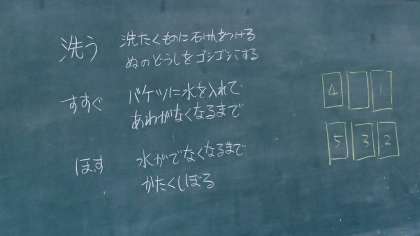 洗う
洗たくものに石けんをつける
ぬのどうしをゴシゴシする
すすぐ
バケツに水を入れて
あわがなくなるまで
ほす
水がでなくなるまで
かたくしぼる
4 1
5 3 2